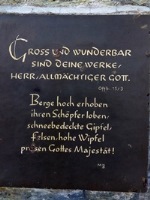 GROSS UND WUNDERBAR
SIND DEINE WERKE,
HERR, ALLMÄCHTIGER GOTT.
Offb. 15/3
Berge hoch erhoben
ihren Schöpfer loben,
schneebedeckte Gipfel,
Felsen, hohe Wipfel
preisen Gottes Majestät!